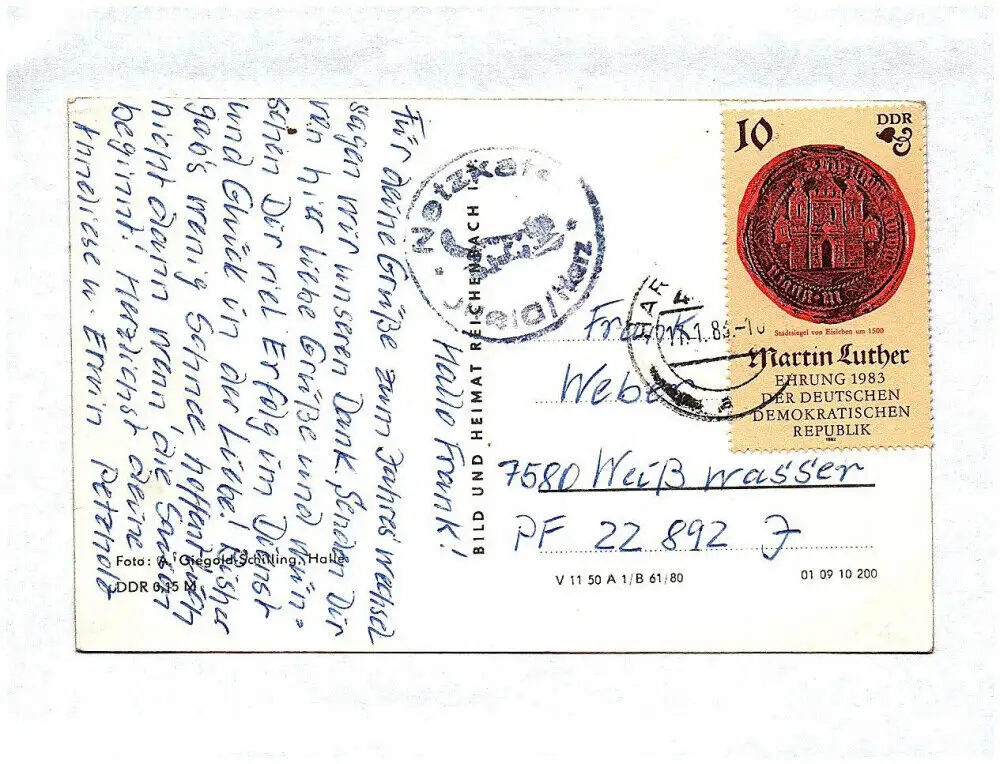 Hallo Frank!
Für deine Grüße zum Jahreswechsel
sagen wir unseren Dank, senden Dir
von hier liebe Grüße und wün=
schen Dir viel Erfolg im Dienst
und Glück in der Liebe! Bisher
gab's wenig Schnee, hoffentlich
nicht dann wenn die Saison
beginnt! Herzlichst deine
Anneliese u. Erwin Petzhold
Foto: A. Giegold-Schilling, Halle
DDR 0,15 M
BILD UND HEIMAT REICHENBACH
Netzkater
Harz
10
DDR
Stadtsiegel von Eisleben um 1500
Martin Luther
EHRUNG 1983
DER DEUTSCHEN
DEMOKRATISCHEN
REPUBLIK
1982
Frank
Weber
7580 Weißwasser
PF 22 892 J
V 11 50 A 1/B 61/80
01 09 10 200